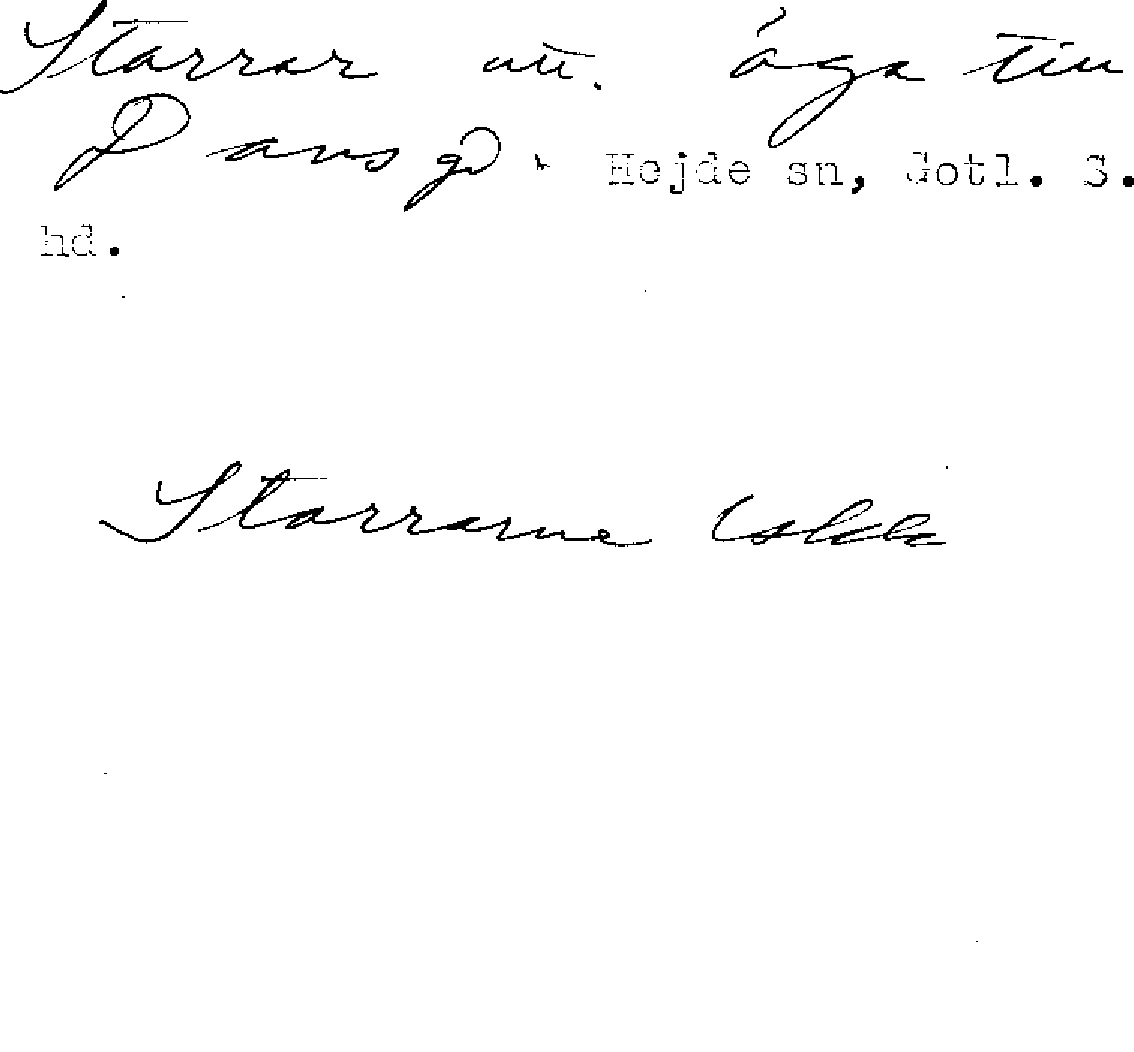 Starrar att. åga till
Pavsgd. Hejde sn, Gotl. S.
hd.
Starrarne